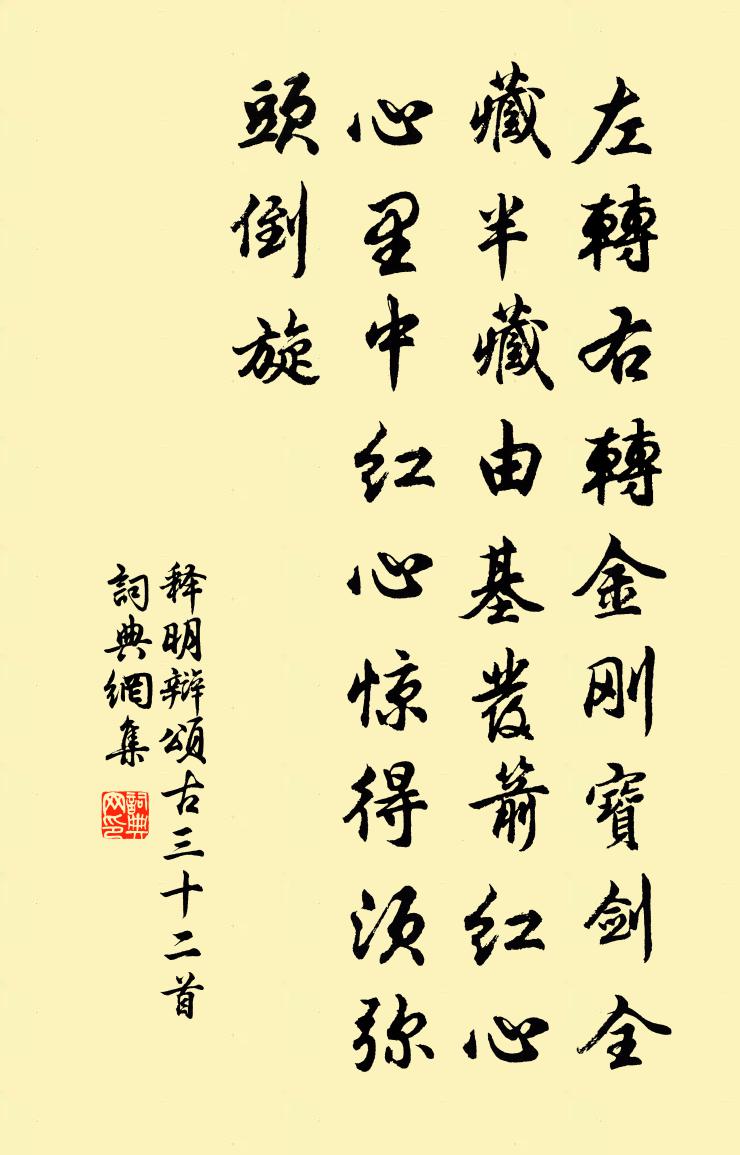 左轉右轉金刚寶劍全
藏半藏由基發箭红心
心里中红心惊得须弥
頭倒旋
释明辩頌古三十二首
詞典網集
詞典网印